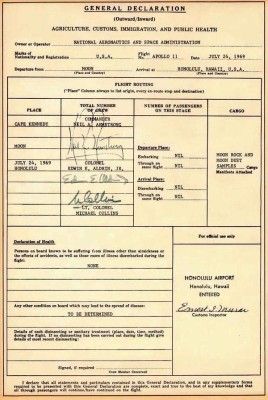 GENERAL DECLARATION
(Outward/Inward)
AGRICULTURE, CUSTOMS, IMMIGRATION, AND PUBLIC HEALTH
Owner or Operator NATIONAL AERONAUTICS AND SPACE ADMINISTRATION
Marks of Nationality and Registration U.S.A. Flight No. APOLLO 11 Date JULY 24, 1969
Departure from MOON Arrival at HONOLULU, HAWAII, U.S.A.
(Place and Country) (Place and Country)
FLIGHT ROUTING
("Place" Column always to list origin, every en-route stop and destination)
PLACE
TOTAL NUMBER OF CREW
NUMBER OF PASSENGERS ON THIS STAGE
CARGO
CAPE KENNEDY
COMMANDER
NEIL A. ARMSTRONG
MOON
Departure Place:
Embarking NIL
Through on same flight NIL
MOON ROCK AND
MOON DUST
SAMPLES
Cargo Manifests Attached
JULY 24, 1969
HONOLULU
COLONEL
EDWIN E. ALDRIN, JR.
Arrival Place:
Disembarking NIL
Through on same flight NIL
LT. COLONEL
MICHAEL COLLINS
Declaration of Health
For official use only
Persons on board known to be suffering from illness other than airsickness or
the effects of accidents, as well as those cases of illness disembarked during the
flight:
NONE
HONOLULU AIRPORT
Honolulu, Hawaii
ENTERED
Customs Inspector
Any other condition on board which may lead to the spread of disease:
TO BE DETERMINED
Details of each disinsecting or sanitary treatment (place, date, time, method)
during the flight. If no disinsecting has been carried out during the flight give
details of most recent disinsecting:
Signed, if required
Crew Member Concerned
I declare that all statements and particulars contained in this General Declaration, and in any supplementary forms
required to be presented with this General Declaration are complete, exact and true to the best of my knowledge and that
all through passengers will continue/have continued on the flight.